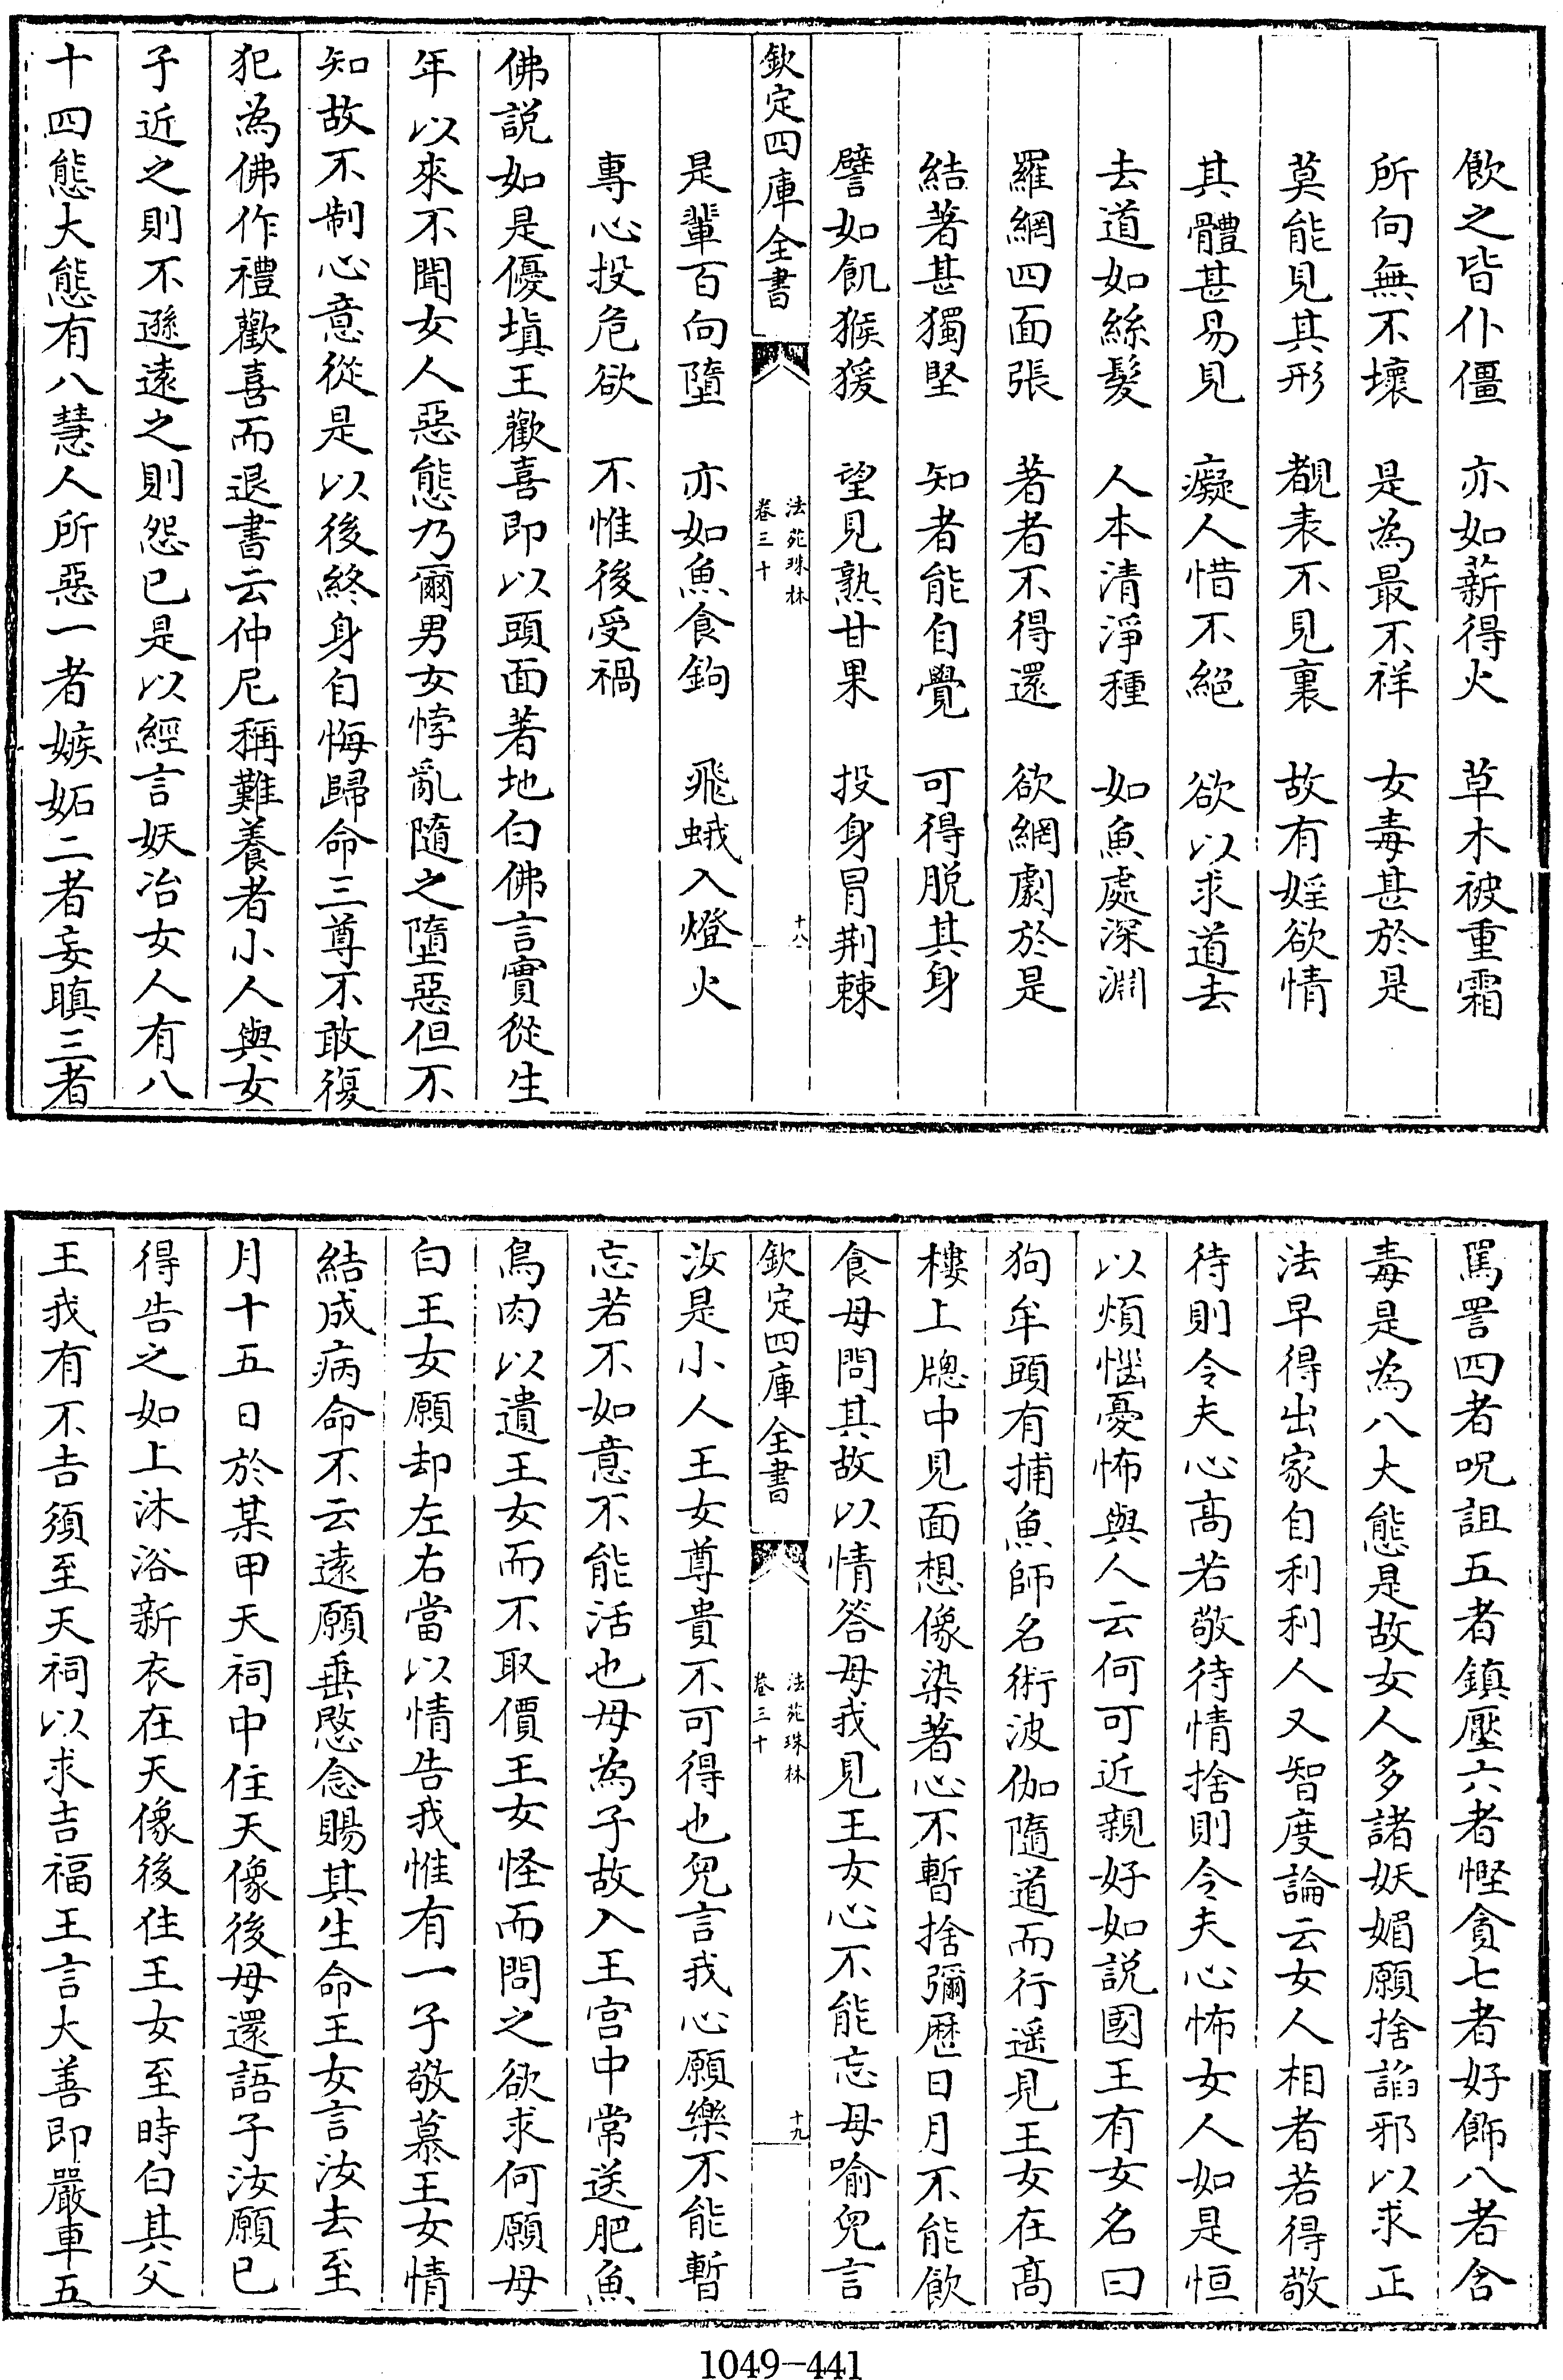 飲之皆仆僵　亦如薪得火　草木被重霜
所向無不壞　是為最不祥　女毒甚於是
莫能見其形　覩表不見裏　故有婬欲情
其體甚易見　癡人惜不絕　欲以求道去
去道如絲髮　人本清淨種　如魚處深淵
羅網四面張　著者不得還　欲網劇於是
結著甚獨堅　知者能自覺　可得脱其身
譬如飢猴猨　望見熟甘果　投身冒荆棘
欽定四庫全書　法苑珠林卷三十　十八
是輩百向墮　亦如魚食鉤　飛蛾入燈火
專心投危欲　不惟後受禍
佛説如是優塡王歡喜即以頭面著地白佛言實從生
年以來不聞女人惡態乃爾男女悖亂隨之墮惡但不
知故不制心意從是以後終身自悔歸命三尊不敢復
犯為佛作禮歡喜而退書云仲尼稱難養者小人與女
子近之則不遜遠之則怨已是以經言妖冶女人有八
十四態大態有八慧人所惡一者嫉妬二者妄瞋三者
罵詈四者呪詛五者鎮壓六者慳貪七者好飾八者含
毒是為八大態是故女人多諸妖媚願捨諂邪以求正
法早得出家自利利人又智度論云女人相者若得敬
待則令夫心高若敬待情捨則令夫心怖女人如是恒
以煩惱憂怖與人云何可近親好如説國王有女名曰
狗牟頭有捕魚師名術波伽隨道而行遥見王女在高
樓上牕中見面想像染著心不暫捨彌歷日月不能飲
食母問其故以情答母我見王女心不能忘母喻兒言
欽定四庫全書　法苑珠林卷三十　十九
汝是小人王女尊貴不可得也兒言我心願樂不能暫
忘若不如意不能活也母為子故入王宮中常送肥魚
鳥肉以遺王女而不取價王女怪而問之欲求何願母
白王女願却左右當以情告我惟有一子敬慕王女情
結成病命不云遠願垂愍念賜其生命王女言汝去至
月十五日於某甲天祠中住天像後母還語子汝願已
得告之如上沐浴新衣在天像後住王女至時白其父
王我有不吉須至天祠以求吉福王言大善即嚴車五
1049-441